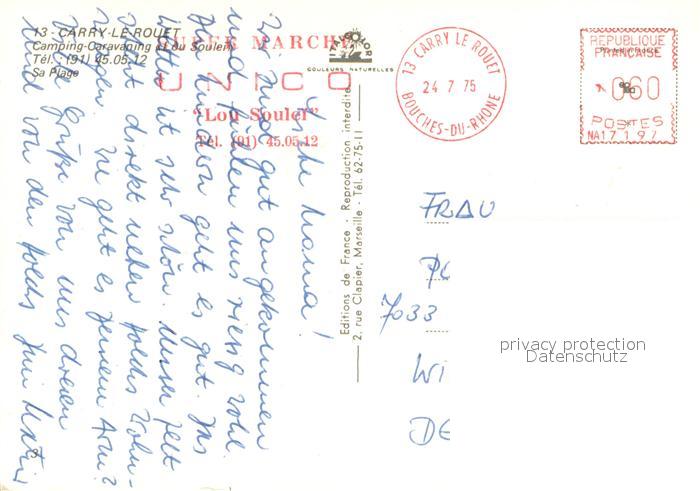 13 - CARRY-LE-ROUET
Camping-Caravaning (Lou Souleï)
Tél. : (91) 45.05.12
Sa Plage
SUPER MARCHE
UNICO
"Lou Souleï"
Tél. (91) 45.05.12
COULEURS NATURELLES
13 CARRY LE ROUET
24 7 75
BOUCHES-DU-RHONE
REPUBLIQUE
FRANÇAISE
060
POSTES
NA17197
Editions de France - Reproduction interdite
2, rue Clapier, Marseille - Tél. 62-75-11
Liebe Mama!
Wir sind gut angekommen
und fühlen uns riesig wohl.
Den Kindern geht es gut. Das
Wetter ist sehr schön. Unser Zelt
steht direkt neben Polds Wohn-
wagen. Wie geht es Deinem Arm?
Viele Grüße von uns dreien
und von den Polds
FRAU
7033
WI
DE
privacy protection
Datenschutz